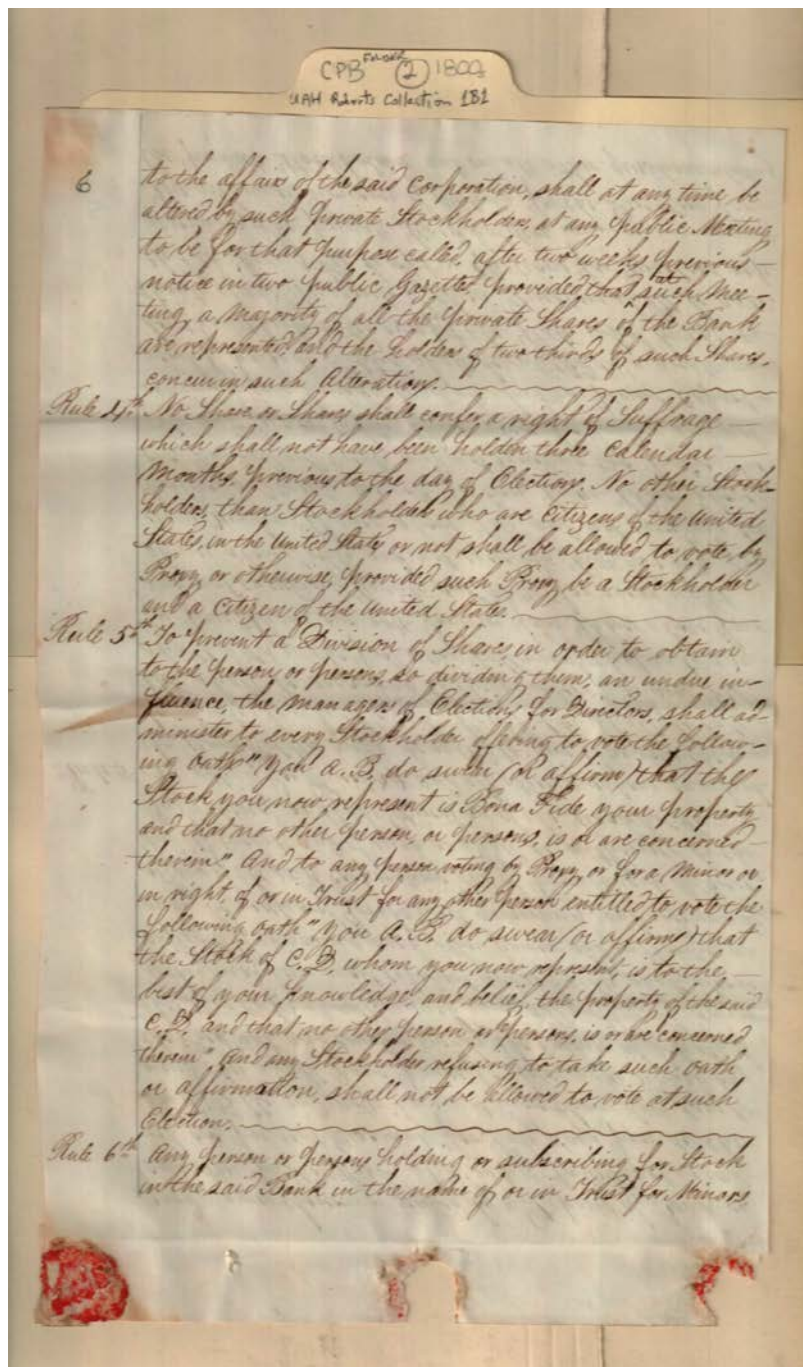 CPB Folder 2 1802
UAH Roberts Collection 181
6
to the affairs of the said Corporation, shall at any time be
altered by such private Stockholders, at any public Meeting
to be for that purpose called, after two weeks previous
notice in two public Gazettes provided that at such Mee-
ting, a majority of all the private Shares of the Bank
are represented, and the holders of two thirds of such Shares,
concur in such Alterations.
Rule 4th. No Share or Shares shall confer a right of Suffrage
which shall not have been holden three Calendar
Months, previous to the day of Elections. No other Stock-
holders, than Stockholders who are Citizens of the United
States, in the United States or not shall be allowed to vote, by
Proxy or otherwise, provided such Proxy be a Stockholder
and a Citizen of the United States.
Rule 5th To prevent a Division of Shares in order to obtain
to the person, or persons, so dividing them, an undue in-
fluence, the managers of Elections for Directors, shall ad-
minister to every Stockholder offering to vote the follow-
ing oath "You A. B. do swear (or affirm) that the
Stock you now represent is Bona Fide your property
and that no other person, or persons, is or are concerned
therein" And to any person voting by Proxy or for a Minor or
in right, of or in Trust for any other person entitled to vote the
following oath "You A. B. do swear (or affirm) that
the Stock of C. D. whom you now represent, is to the
best of your knowledge, and belief, the property of the said
C. D. and that no other person or persons, is or are concerned
therein" and any Stockholder refusing to take such oath
or affirmation, shall not be allowed to vote at such
Election.
Rule 6th Any person or persons holding or subscribing for Stock
in the said Bank in the name of or in Trust for Minors,